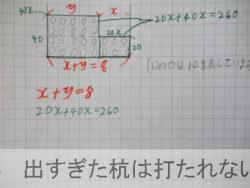 40x
y
x
20x+40x=260
40
20x
20
x+y=8
(1つの○は10を表していま
x+y=8
20x+40x=260
出すぎた杭は打たれない